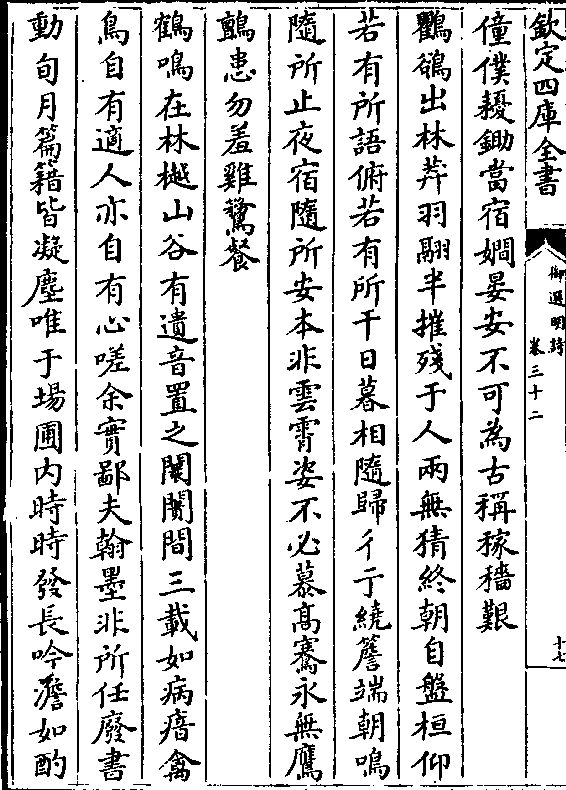 欽定四庫全書
御選明詩
卷三十二
十七
僮僕耰鋤當宿嫺晏安不可為古稱稼穡艱
鸜鵒出林莽羽翮半摧殘于人兩無猜終朝自盤桓仰
若有所語俯若有所干日暮相隨歸彳亍繞簷端朝鳴
隨所止夜宿隨所安本非雲霄姿不必慕高騫永無鷹
鸇患勿羞雞鶩餐
鶴鳴在林樾山谷有遺音置之闤闠間三載如病瘖禽
鳥自有適人亦自有心嗟余實鄙夫翰墨非所任廢書
動旬月篇籍皆凝塵唯于場圃內時時發長吟澹如酌